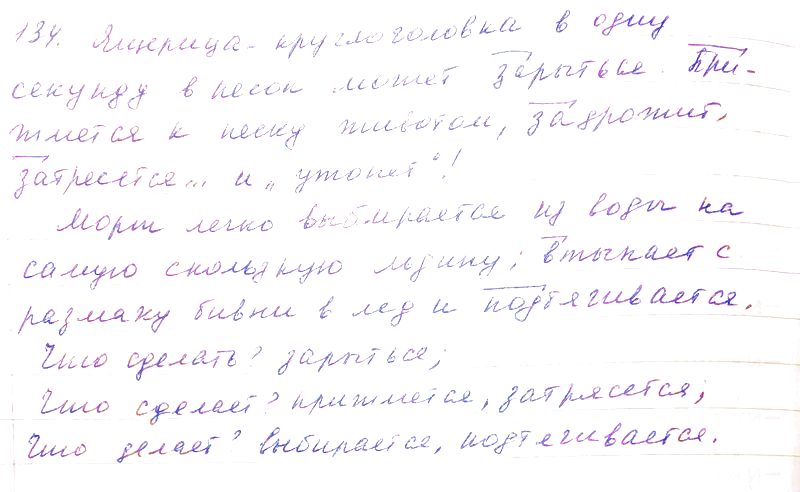 134. Ящерица-круглоголовка в одну
секунду в песок может зарыться. При-
жмётся к песку животом, задрожит,
затресётся... и „утонет"!
Морж легко выбирается из воды на
самую скользкую льдину; втыкает с
размаху бивни в лед и подтягивается.
Что сделать? зарыться;
Что сделает? прижмётся, затрясётся;
Что делает? выбирается, подтягивается.